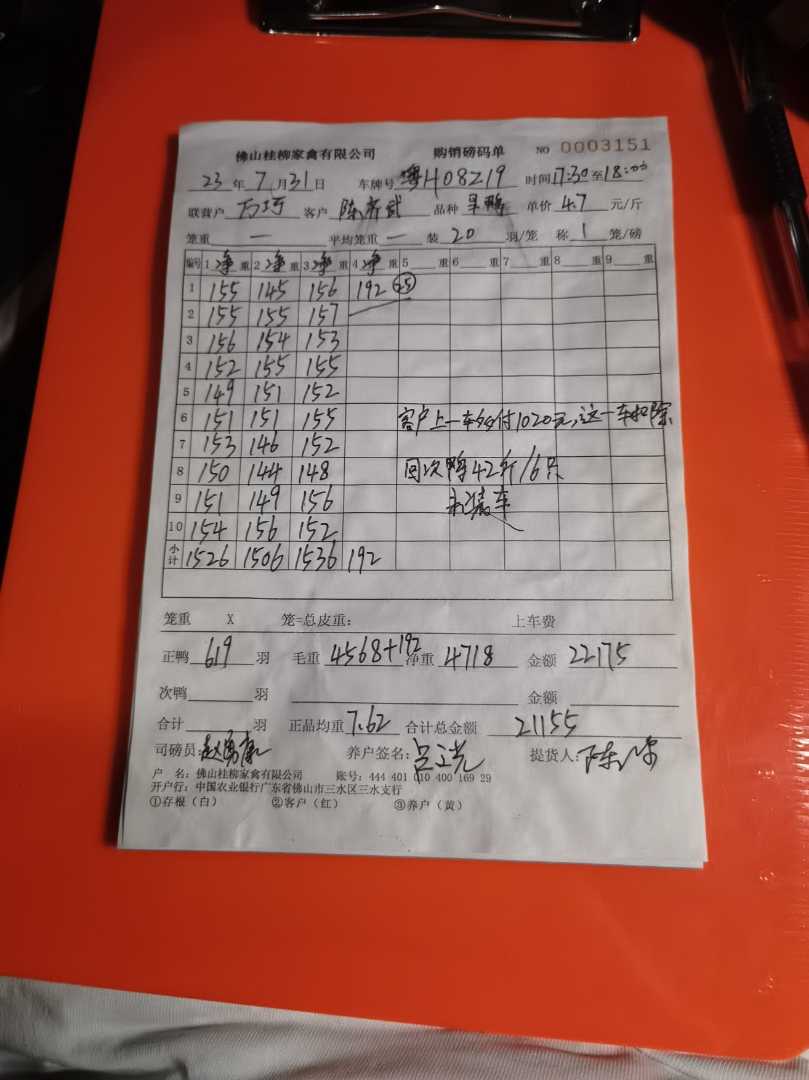 佛山桂柳家禽有限公司 购销磅码单 NO 0003151
23 年 7 月 31 日 车牌号 粤H08219 时间 17:30 至 18:00
联营户 客户 陈齐武 品种 单价 4.7 元/斤
笼重 一 平均笼重 一 装 20 羽/笼 称 1 笼/磅
编号 1 净 重 2 净 重 3 净 重 4 净 重 5 重 6 重 7 重 8 重 9 重
1 155 145 156 192 25
2 155 155 157
3 156 154 153
4 152 155 155
5 149 151 152
6 151 151 155 客户上一车多付1020元,这一车扣除
7 153 146 152
8 150 144 148 回次鸭42斤/6只
9 151 149 156 未装车
10 154 156 152
小计 1526 1506 1536 192
笼重 X 笼=总皮重: 上车费
正鸭 619 羽 毛重 4568+192 净重 4718 金额 22175
次鸭 羽 金额
合计 羽 正品均重 7.62 合计总金额 21155
司磅员: 养户签名: 提货人:
户 名: 佛山桂柳家禽有限公司 账号: 444 401 010 400 169 29
开户行: 中国农业银行广东省佛山市三水区三水支行
①存根(白) ②客户(红) ③养户(黄)